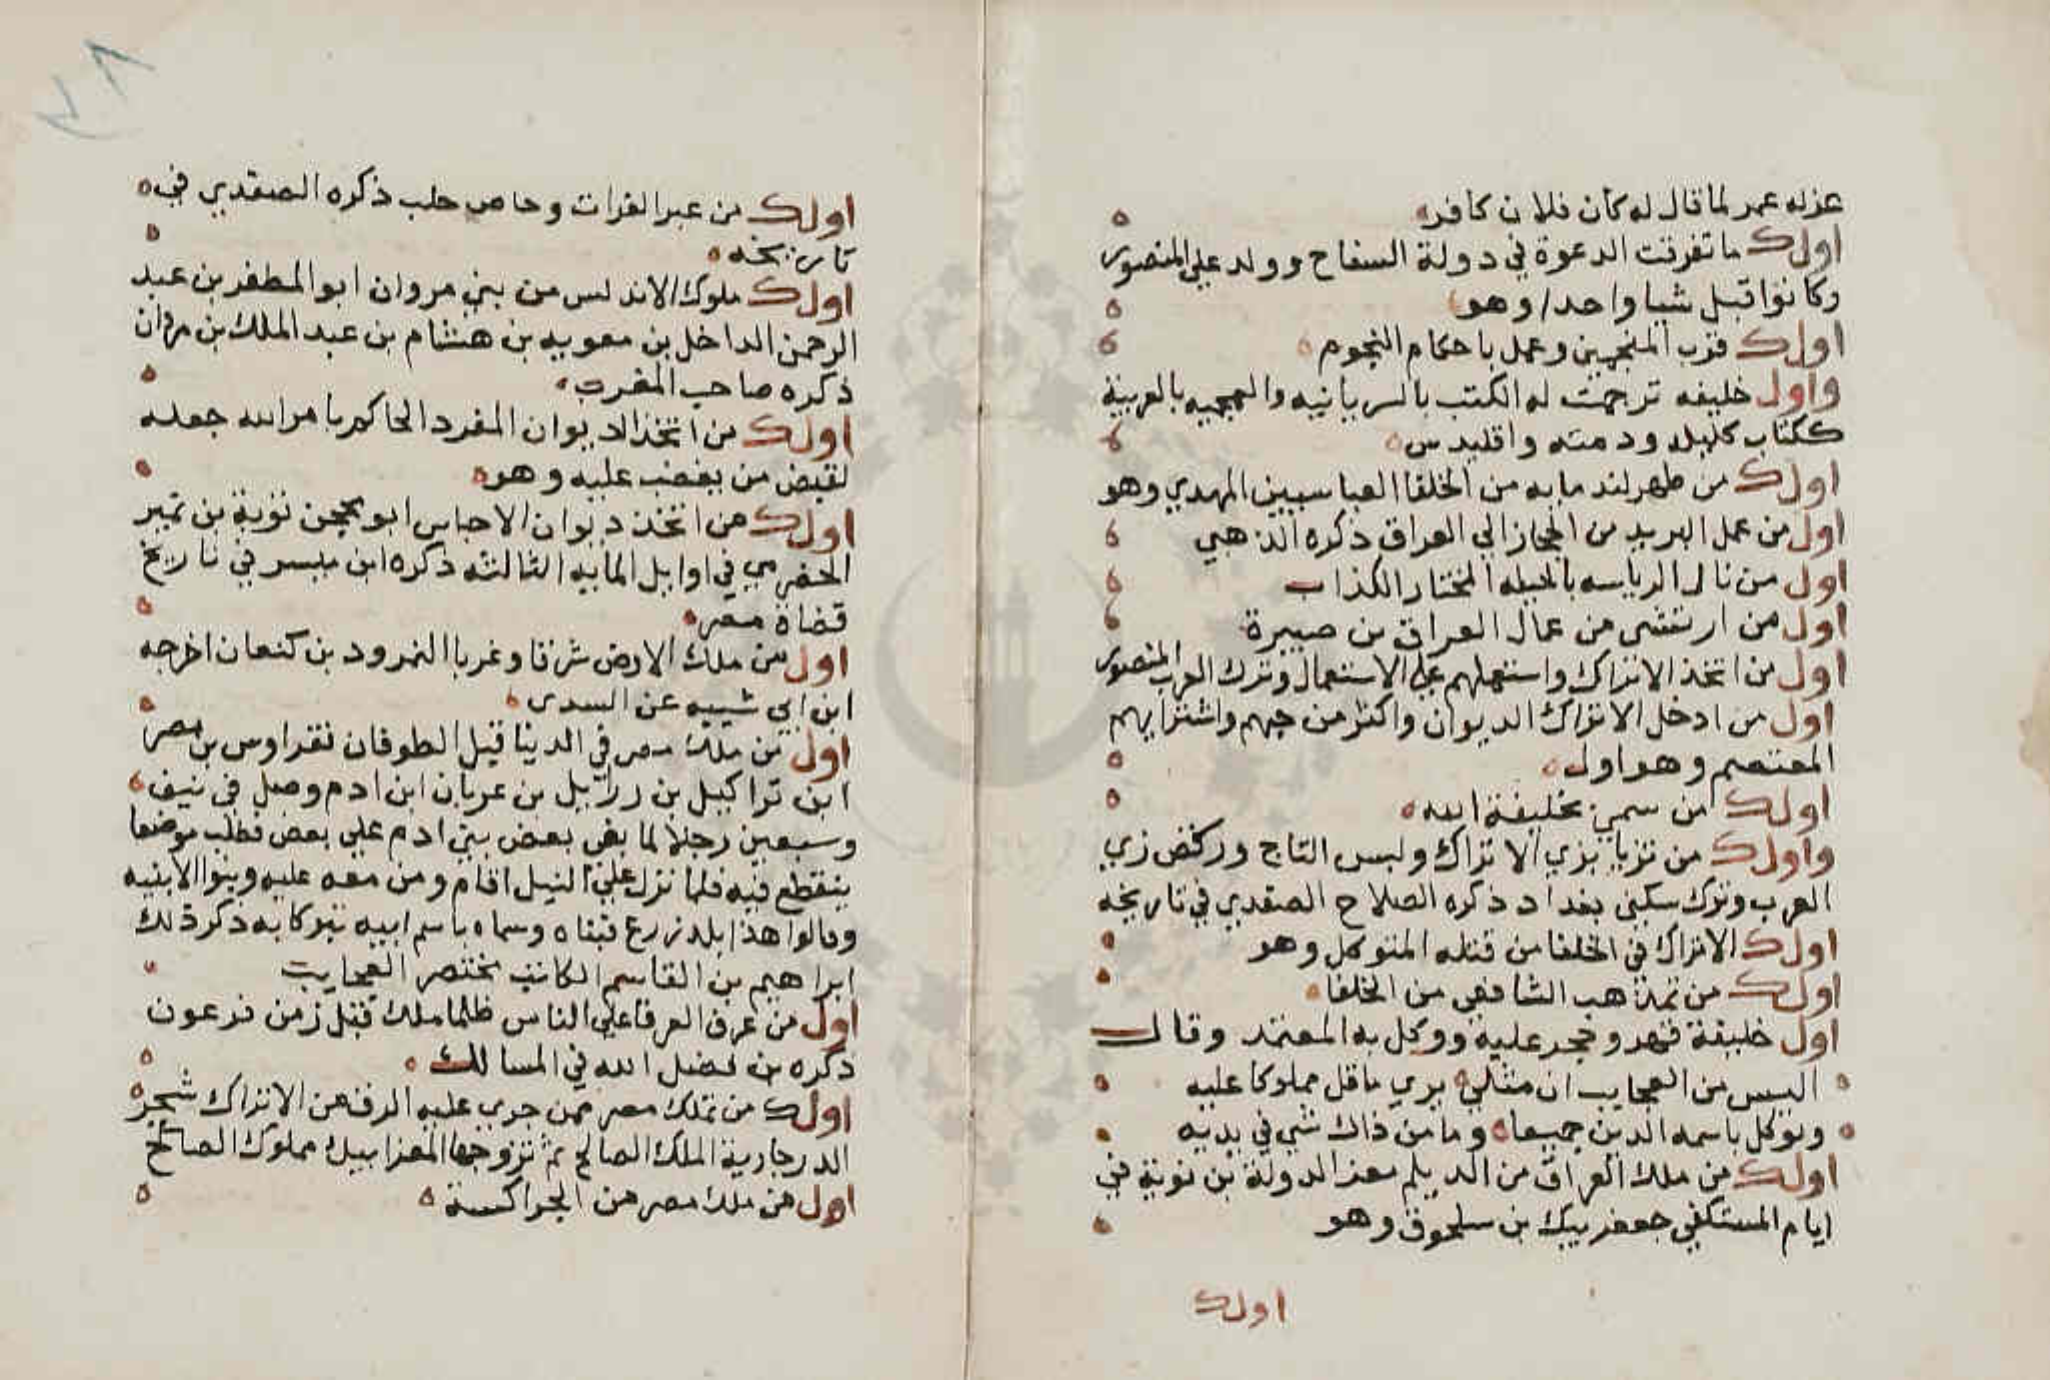 عزله عمر لما قال له كان فلان كافر
اول ما تفرقت الدعوة في دولة السفاح وولد علي المنصور
وكانوا قبل شيا واحدا وهو
اول قرب المنجمين وعمل باحكام النجوم
واول خليفه ترجمت له الكتب بالسريانيه والعجميه بالعربية
ككتاب كليله ودمنه واقليدس
اول من ظهر لندمايه من الخلفا العباسيين المهدي وهو
اول من عمل البريد من الحجاز الي العراق ذكره الذهبي
اول من نال الرياسه المختار الكذاب
اول من ارتشي من عمال العراق بن هبيرة
اول من اتخذ الاتراك واستعملهم علي الاستعمال وترك العرب المنصور
اول من ادخل الاتراك الديوان واكثر من جبهم واشترايهم
المعتصم وهو اول
اول من سمي بخليفة الله
واول من تزيا بزي الاتراك ولبس التاج وركض زي
العرب وترك سكني بغداد ذكره الصلاح الصفدي في تاريخه
اول الاتراك في الخلفا من قتله المتوكل وهو
اول من تمذهب الشافعي من الخلفا
اول خليفة قهر وحجر عليه ووكل به المعتمد وقال
اليس من العجايب ان مثلي يري ماقل مملوكا عليه
وتوكل باسمه الدين جميعا وما من ذاك شي في يديه
اول من ملك العراق من الديلم معز الدولة بن بوية في
ايام المستكفي جعفر بيك بن سلجوق وهو
اول
اول من عبر الفرات وحاصر حلب ذكره الصفدي في
تاريخه
اول ملوك الاندلس من بني مروان ابو المطفر بن عبد
الرحمن الداخل بن معويه بن هشام بن عبد الملك بن مروان
ذكره صاحب المغرب
اول من اتخذ الديوان المفرد الحاكم بامر الله جعله
لقبض من يغضب عليه وهو
اول من اتخذ ديوان الاحباس ابو محجن توبة بن نمير
الحضرمي في اوايل المايه الثالثه ذكره ابن ميسر في تاريخ
قضاة مصر
اول من ملك الارض شرقا وغربا النمرود بن كنعان اخرجه
ابن ابي شيبه عن السدي
اول من ملك مصر في الدنيا قبل الطوفان نقراوس بن مصر
ابن تراكيبل بن رزابيل بن عربان ابن ادم وصل في نيف
وسبعين رجلا لما بغي بعض بني ادم علي بعض فطلب موضعا
ينقطع فيه فلما نزل علي النيل اقام ومن معه عليه وبنوا الابنيه
وقالوا هذا بلد زرع فبناه وسماه باسم ابيه تبركا به ذكر ذلك
ابراهيم بن القاسم الكاتب مختصر العجايب
اول من عرف العرفا علي الناس ظلما ملك قبل زمن فرعون
ذكره بن فضل الله في المسالك
اول من تملك مصر ممن جري عليه الرق من الاتراك شجر
الدر جارية الملك الصالح ثم تزوجها المعز ايبك مملوك الصالح
اول من ملك مصر من الجراكسة